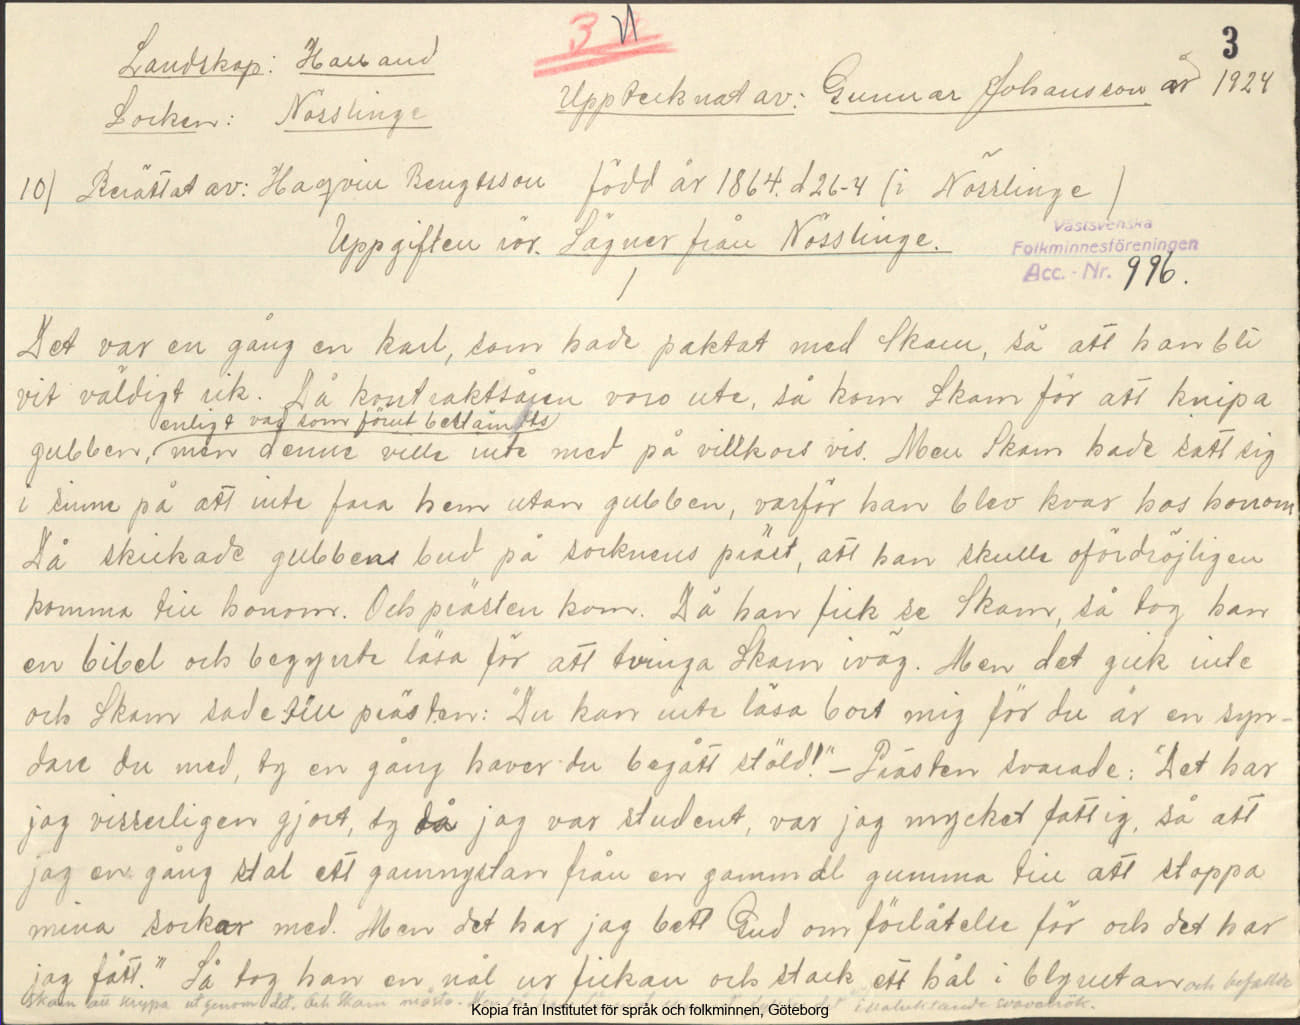 3
3
Landskap: Halland
Upptecknat av: Gunnar Johansson år 1924
Socken: Nösslinge
10) Berättat av: Hagvin Bengtsson född år 1864. d 26-4 (i Nösslinge)
Uppgiften rör. Sägner från Nösslinge.
Västsvenska
Folkminnesföreningen
Acc.-Nr. 996.
Det var en gång en karl, som hade paktat med Skam, så att han bli
vit väldigt rik. Då kontraktsåren voro ute, så kom Skam för att knipa
enligt vad som förut bestämts
gubben, men denne ville inte med på villkors vis. Men Skam hade satt sig
i sinne på att inte fara hem utan gubben, varför han blev kvar hos honom
Då skickade gubben bud på socknens präst, att han skulle ofördröjligen
komma till honom. Och prästen kom. Då han fick se Skam, så tog han
en bibel och begynte läsa för att tvinga Skam iväg. Men det gick inte
och Skam sade till prästen: "Du kan inte läsa bort mig för du är en syn-
dare du med, ty en gång haver du begått stöld!" – Prästen svarade: "Det har
jag visserligen gjort, ty då jag var student, var jag mycket fattig, så att
jag en gång stal ett garnnystan från en gammal gumma till att stoppa
mina sockar med. Men det har jag bett Gud om förlåtelse för och det har
jag fått." Så tog han en nål ur fickan och stack ett hål i blyrutan och befallde
Skam att krypa ut genom det. Och Skam måste. illaluktande svavelrök.
Kopia från Institutet för språk och folkminnen, Göteborg